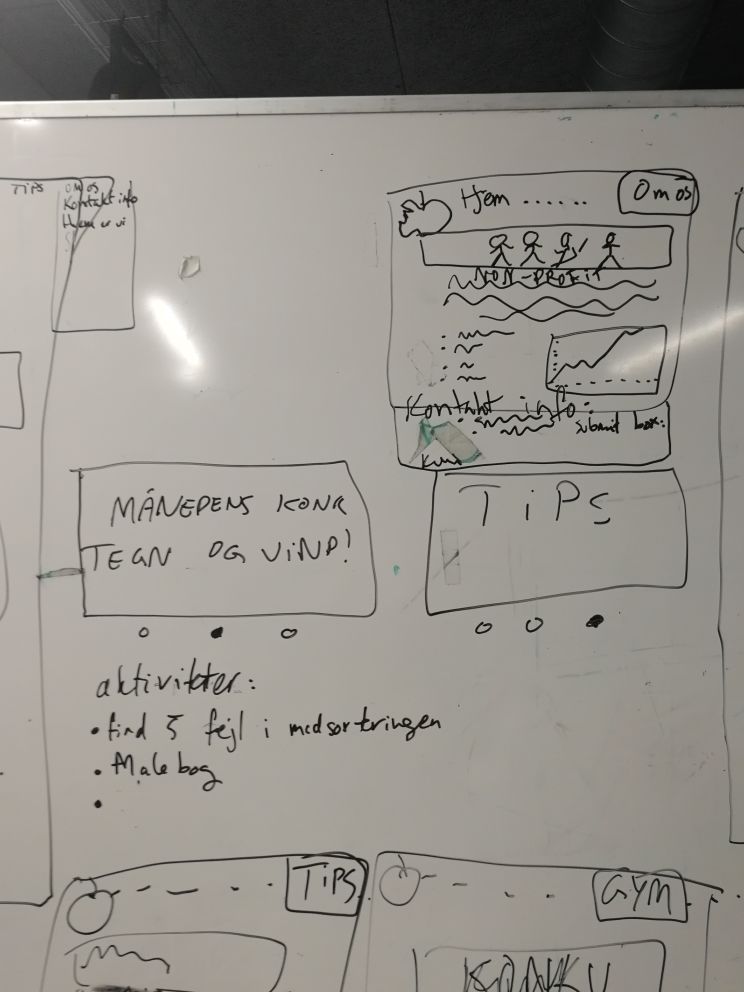 Tips
Om os
Kontakt info
Hvem er vi
Hjem ......
Om os
NON-PROFIT
Kontakt info:
submit box:
MÅNEDENS KONK
TEGN OG VIND!
TiPS
aktiviteter:
• find 5 fejl i medsorteringen
• Malebog
•
TiPS
GYM